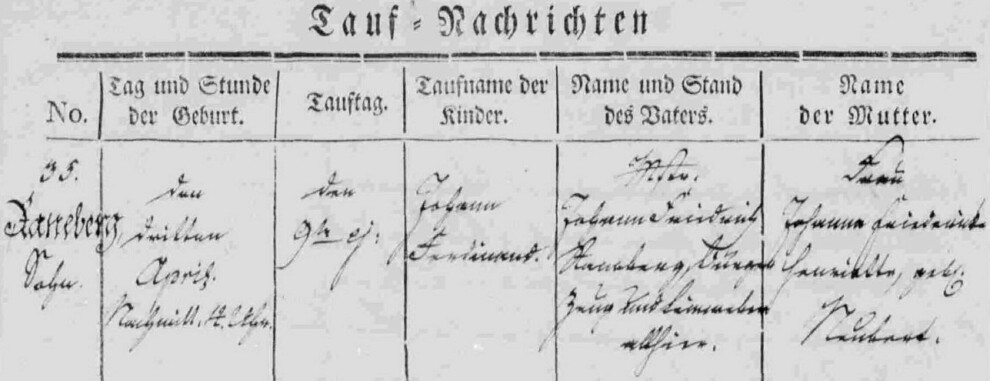 Tauf-Nachrichten
No.
Tag und Stunde
der Geburt.
Tauftag.
Taufname der
Kinder.
Name und Stand
des Vaters.
Name
der Mutter.
35.
Sohn.
den
dritten
April.
Nachmitt. 4. Uhr.
den
9tn ej:
Johann
Ferdinand.
Mstr.
Johann Friedrich
Zeug und Leinweber
allhier.
Frau
Johanne Friedericke
Henriette, geb.
Neubert.